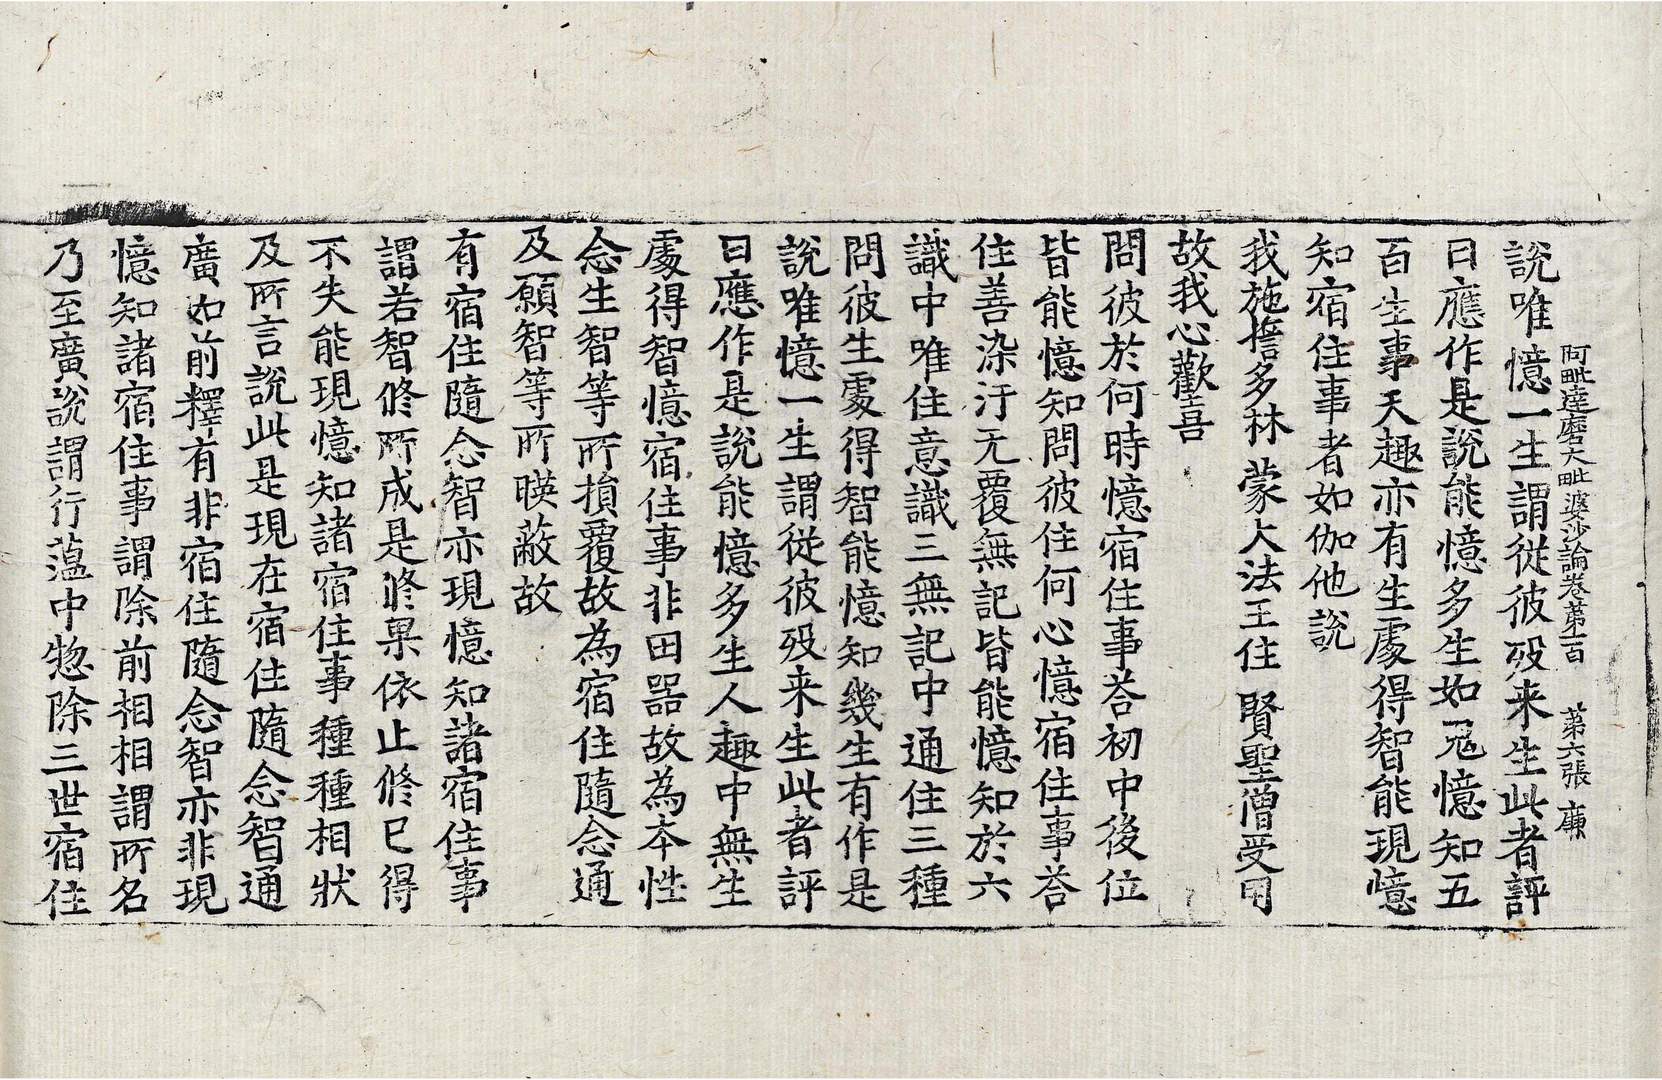 阿毗達磨大毗婆沙論卷第一百　第六張　廉
說唯憶一生謂從彼歿来生此者評
曰應作是說能憶多生如𠕋憶知五
百生事天趣亦有生處得智能現憶
知宿住事者如伽他說
我施誓多林　蒙大法王住　賢聖僧受用
故我心歡喜
問彼於何時憶宿住事荅初中後位
皆能憶知問彼住何心憶宿住事荅
住善染汙无覆無記皆能憶知於六
識中唯住意識三無記中通住三種
問彼生處得智能憶知幾生有作是
說唯憶一生謂從彼歿来生此者評
曰應作是說能憶多生人趣中無生
處得智憶宿住事非田器故為本性
念生智等所損覆故為宿住隨念通
及願智等所暎蔽故
有宿住隨念智亦現憶知諸宿住事
謂若智修所成是修果依止修已得
不失能現憶知諸宿住事種種相狀
及所言說此是現在宿住隨念智通
廣如前釋有非宿住隨念智亦非現
憶知諸宿住事謂除前相相謂所名
乃至廣說謂行蕰中惣除三世宿住